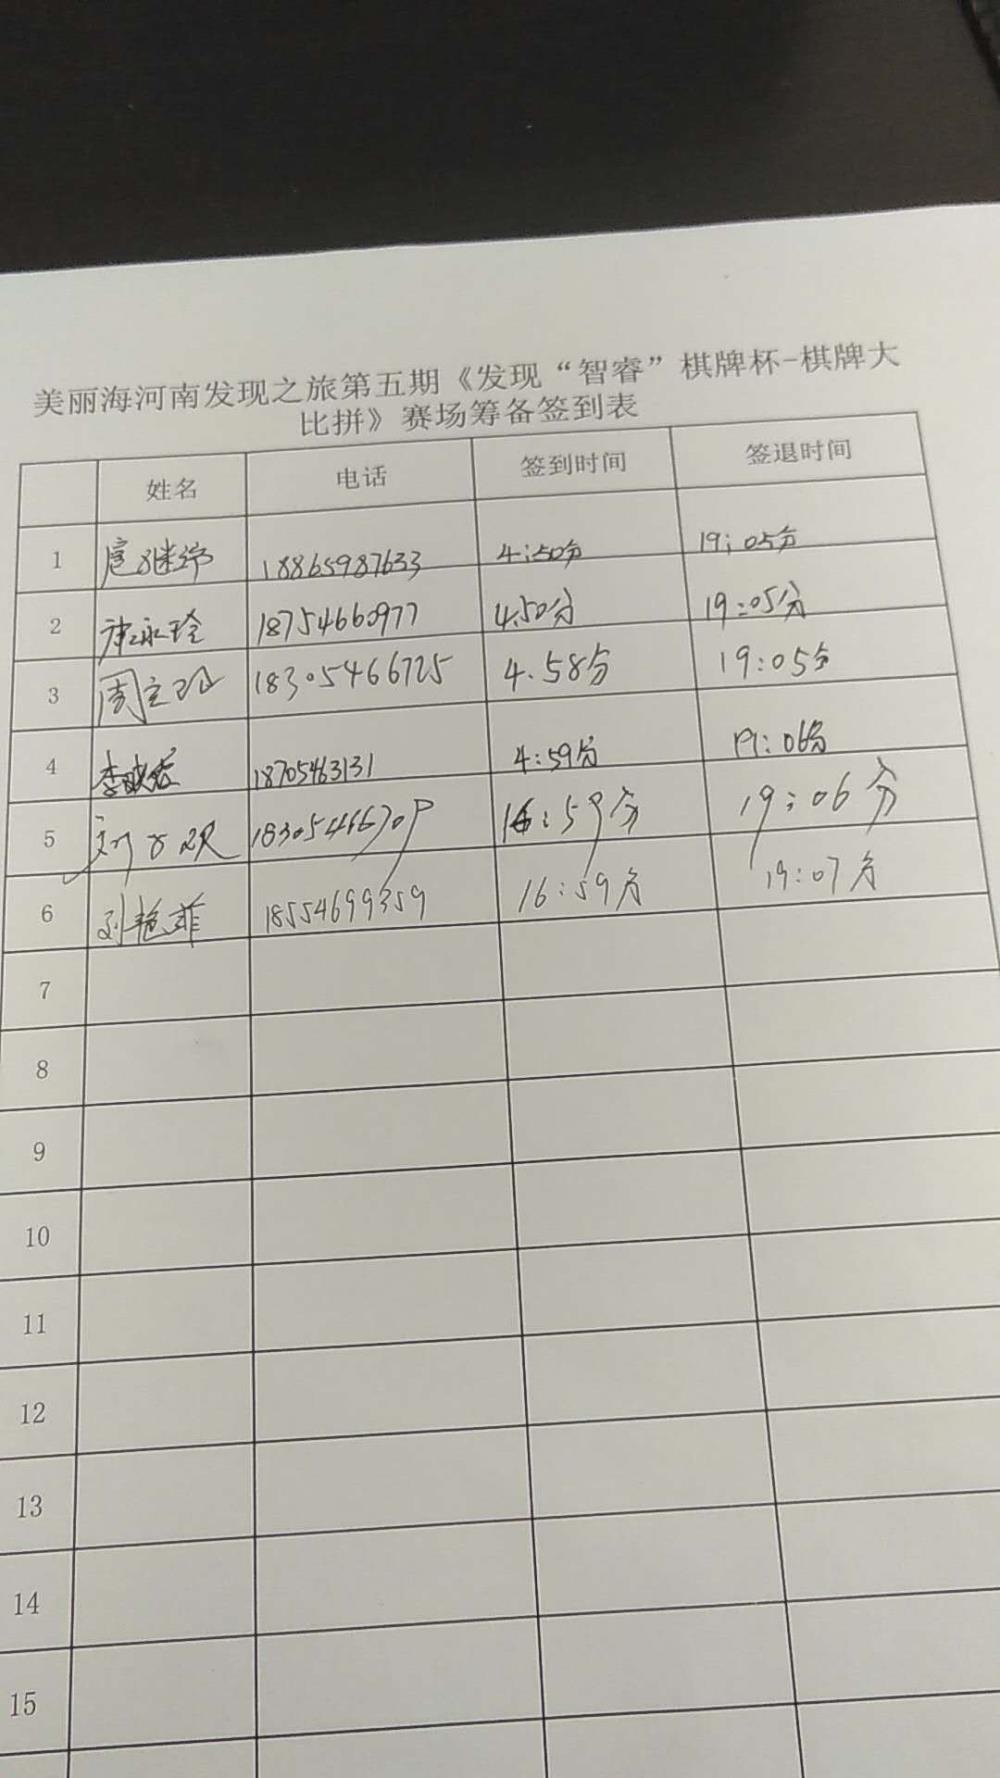 美丽海河南发现之旅第五期《发现“智睿”棋牌杯-棋牌大
比拼》赛场筹备签到表
姓名 电话 签到时间 签退时间
1 18865987633 4:50分 19:05分
2 18754660977 4.50分 19:05分
3 周立 18305466725 4.58分 19:05分
4 李 18705463131 4:59分 19:06分
5 刘 1830546670P 16:59分 19:06分
6 刘艳菲 18554699359 16:59分 19:07分
7
8
9
10
11
12
13
14
15